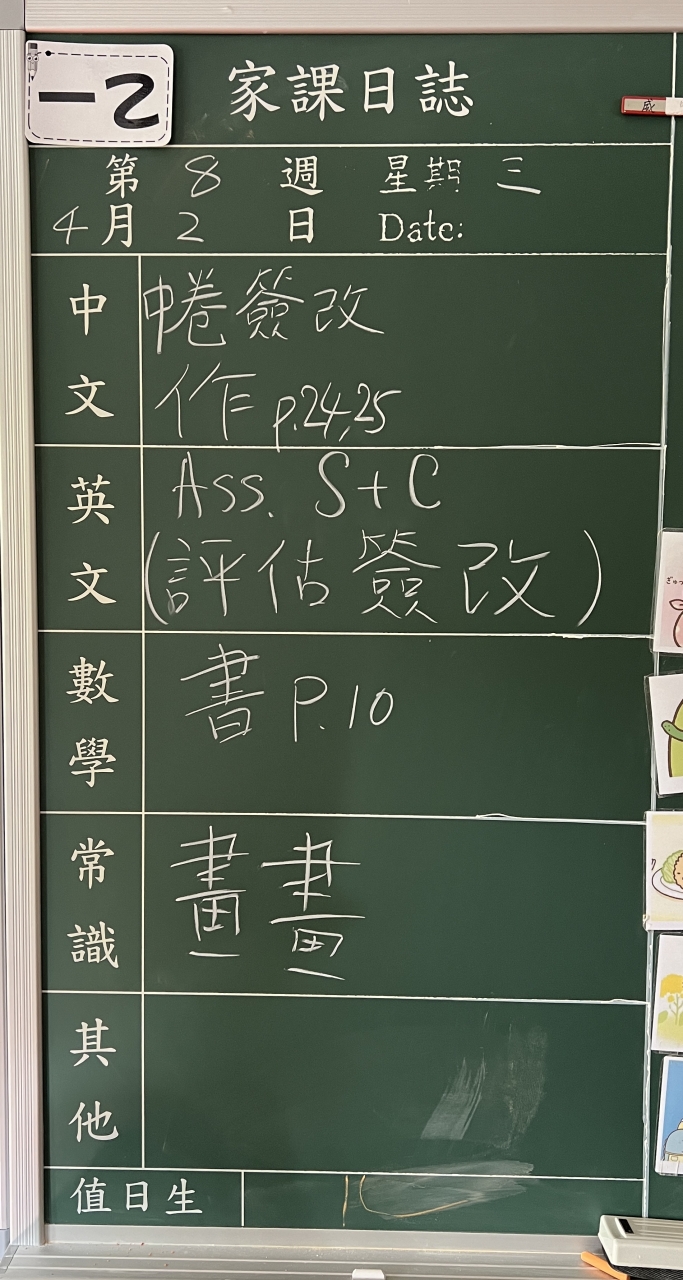 一乙
家課日誌
威
第 8 週 星期 三
4月 2 日 Date:
中文
中卷簽改
作 p.24,25
英文
Ass. S+C
(評估簽改)
數學
書 P.10
常識
畫畫
其他
值日生